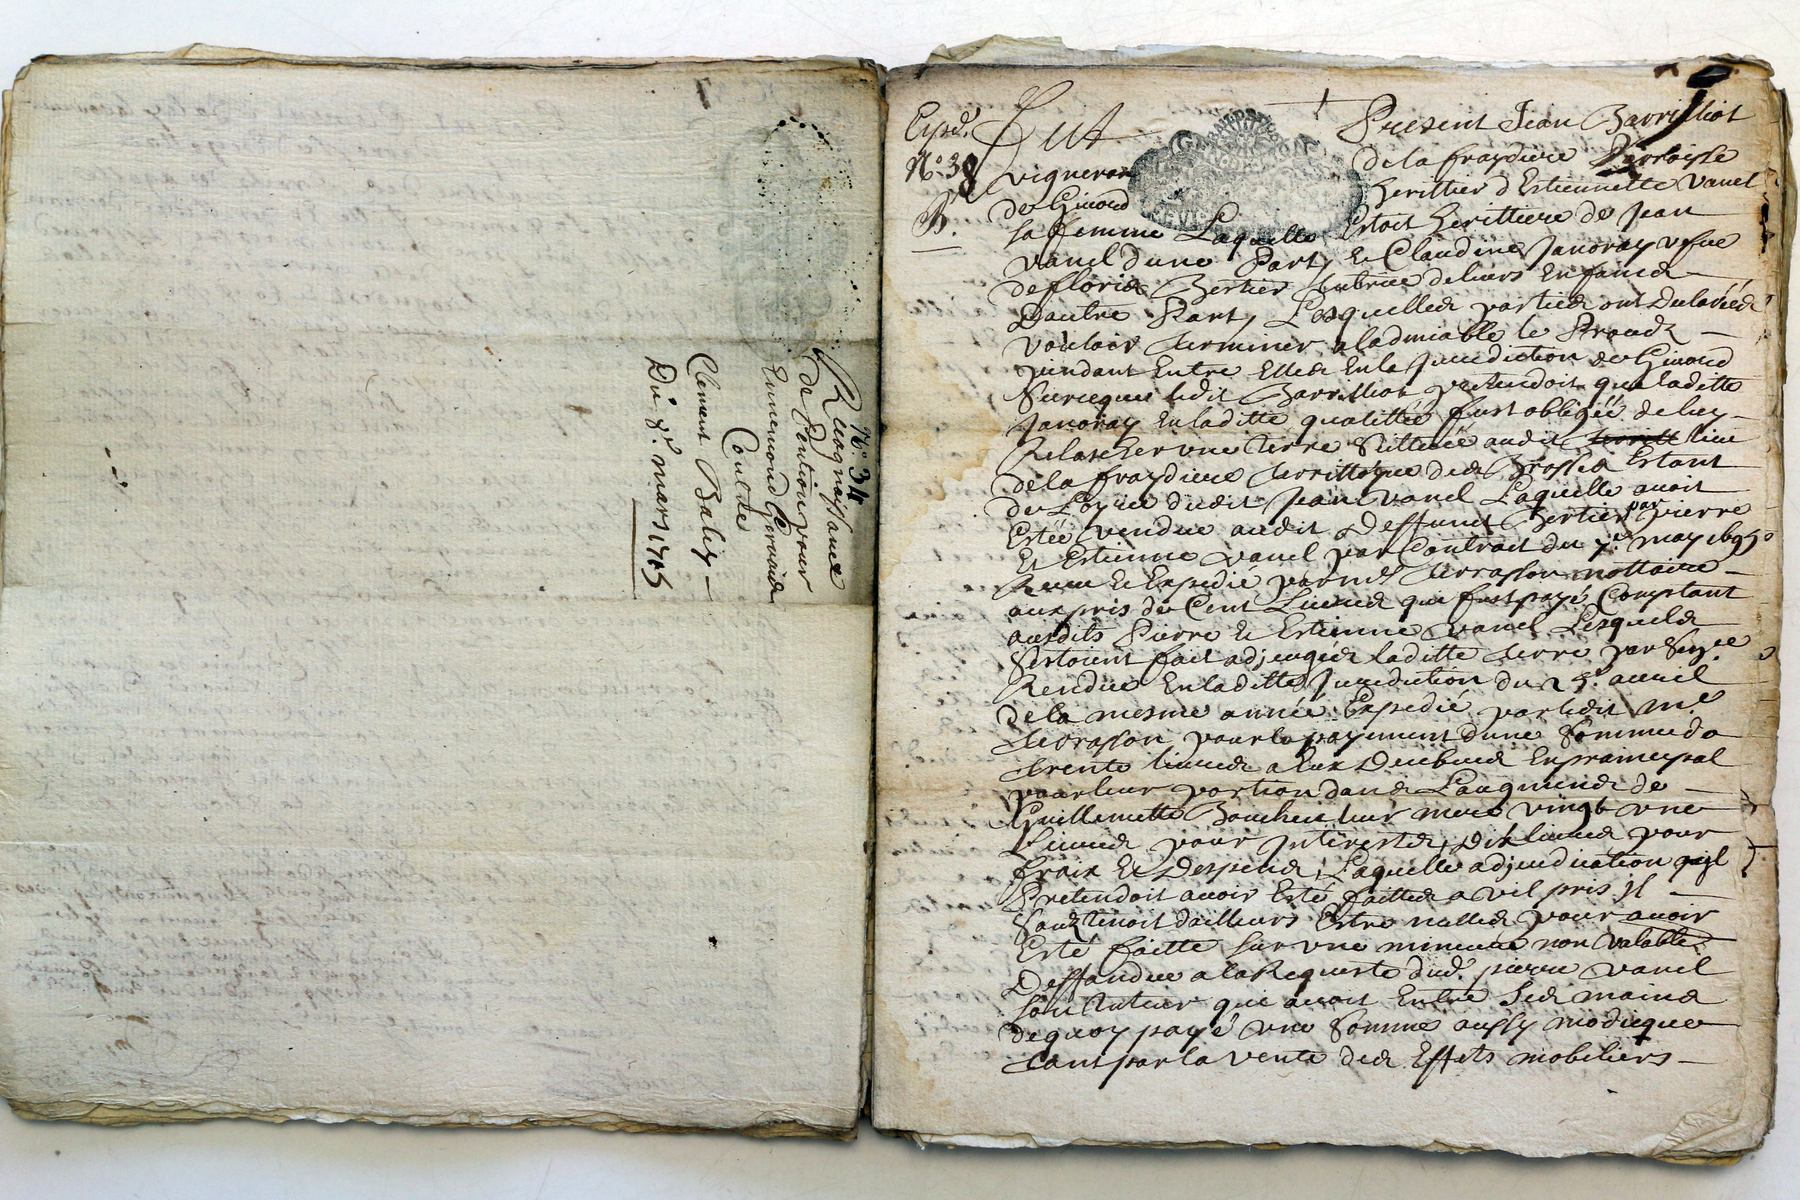 N.° 34
Recognoissance
de Pention pour
Ennemond
Conte
Clement Baley
Du 8.e mars 1705
Expd.
N.° 38
Fut Present Jean Barrilliot
vigneron de la fraydiere Parroisse
de Giuord heritier d'Estiennette Vanel
sa femme Laquelle Estoit heritiere de Jean
vanel dune Part, Et Claudine Janoray vefue
de Bertier tutrice de leurs Enfans
Dautre Part, Lesquelles parties ont declarées
vouloir terminer a ladmiable le Procez
pendant Entre Elles En la Jurediction de Giuord
Surceque ledit Barrilliot pretendoit que laditte
Janoray En laditte qualittée fust obligée de luy
Relascher une terre Scittuée audit lieu
de la fraydiere territtoyre des Brosses Estant
de Loyrie dudit Jean vanel Laquelle auoit
Estée vendue audit deffunct Bertier par pierre
Et Estienne vanel par Contrait du 7.e may 1695
Receu Et Expedié par me Terrasson nottaire
aux pris de Cent Liures qui fust payé Comptant
ausdits Pierre Et Estienne vanel Lesquels
Sestoient fait adjuger laditte terre par
Rendue En laditte Jurediction du 25.e auril
de la mesme année Expedié par ledit me
Terrasson pour le payement dune Somme de
trente liures a Eux Deubues En principal
pour leur portion dans Laugment de
Guillemette Boucher leur mere vingt une
Liures pour Interests, dix liures pour
fraix Et Despens, Laquelle adjudication quil
Pretendoit auoir Esté faitte a vil pris Il
Soubtenoit dailleurs Estre nulle pour auoir
Esté faitte sur une mineure non valable
Deffandue a la Requeste dud. pierre vanel
son tuteur qui auoit Entre Ses mains
de quoy payé une Somme aussy modique
tant par la vente des Effets mobiliers